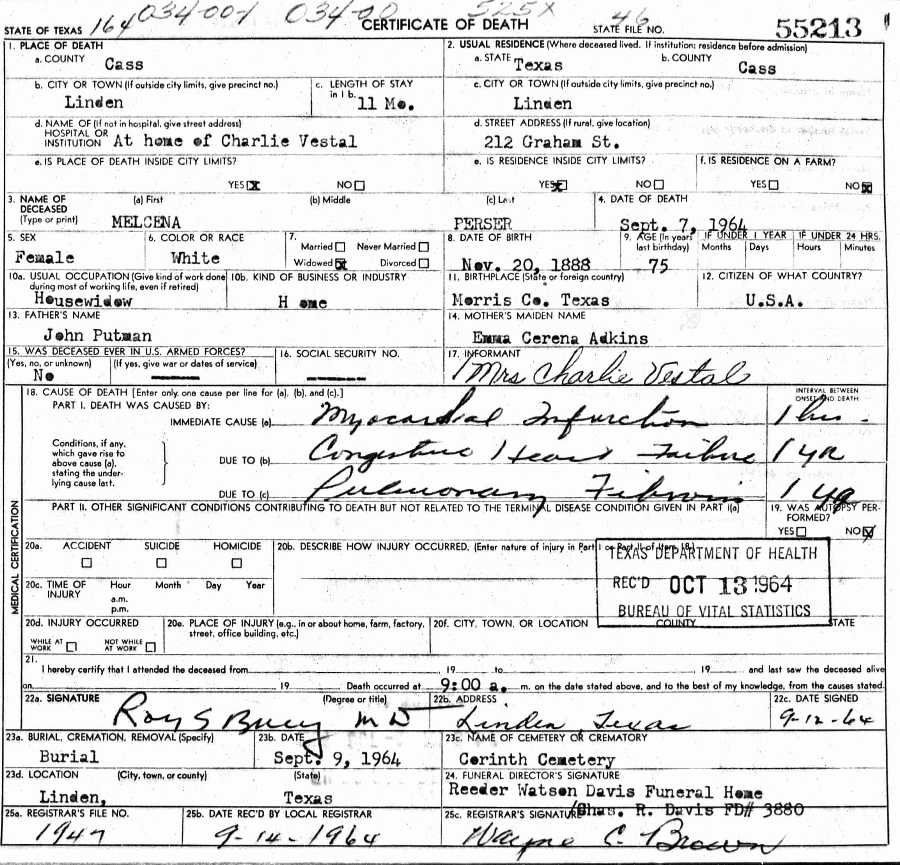 164 034-00-1 034-00 525X 46
STATE OF TEXAS CERTIFICATE OF DEATH STATE FILE NO. 55213
1. PLACE OF DEATH
a. COUNTY Cass
2. USUAL RESIDENCE (Where deceased lived. If institution: residence before admission)
a. STATE Texas b. COUNTY Cass
b. CITY OR TOWN (If outside city limits, give precinct no.) Linden
c. LENGTH OF STAY in 1 b. 11 Mo.
c. CITY OR TOWN (If outside city limits, give precinct no.) Linden
d. NAME OF (If not in hospital, give street address) HOSPITAL OR INSTITUTION At home of Charlie Vestal
d. STREET ADDRESS (If rural, give location) 212 Graham St.
e. IS PLACE OF DEATH INSIDE CITY LIMITS?
YES ☒ NO ☐
e. IS RESIDENCE INSIDE CITY LIMITS?
YES ☒ NO ☐
f. IS RESIDENCE ON A FARM?
YES ☐ NO ☒
3. NAME OF DECEASED (Type or print) (a) First MELCENA (b) Middle (c) Last PERSER
4. DATE OF DEATH Sept. 7, 1964
5. SEX Female
6. COLOR OR RACE White
7. Married ☐ Never Married ☐
Widowed ☒ Divorced ☐
8. DATE OF BIRTH Nov. 20, 1888
9. AGE (In years last birthday) 75
IF UNDER 1 YEAR Months Days
IF UNDER 24 HRS. Hours Minutes
10a. USUAL OCCUPATION (Give kind of work done during most of working life, even if retired) Housewidow
10b. KIND OF BUSINESS OR INDUSTRY H ome
11. BIRTHPLACE (State or foreign country) Morris Co. Texas
12. CITIZEN OF WHAT COUNTRY? U.S.A.
13. FATHER'S NAME John Putman
14. MOTHER'S MAIDEN NAME Emma Cerena Adkins
15. WAS DECEASED EVER IN U.S. ARMED FORCES?
(Yes, no, or unknown) No (If yes, give war or dates of service)
16. SOCIAL SECURITY NO.
17. INFORMANT Mrs Charlie Vestal
MEDICAL CERTIFICATION
18. CAUSE OF DEATH [Enter only one cause per line for (a), (b), and (c).]
INTERVAL BETWEEN ONSET AND DEATH
PART I. DEATH WAS CAUSED BY:
IMMEDIATE CAUSE (a) Myocardial Infurction 1 hr.
Conditions, if any, which gave rise to above cause (a), stating the underlying cause last.
DUE TO (b) Congestive Heart Failure 1 yr
DUE TO (c) Pulmonary Fibrosis 1 yr
PART II. OTHER SIGNIFICANT CONDITIONS CONTRIBUTING TO DEATH BUT NOT RELATED TO THE TERMINAL DISEASE CONDITION GIVEN IN PART I(a)
19. WAS AUTOPSY PERFORMED?
YES ☐ NO ☒
20a. ACCIDENT ☐ SUICIDE ☐ HOMICIDE ☐
20b. DESCRIBE HOW INJURY OCCURRED. (Enter nature of injury in Part I or Part II of item 18.)
20c. TIME OF INJURY Hour a.m. p.m. Month Day Year
TEXAS DEPARTMENT OF HEALTH
REC'D OCT 13 1964
BUREAU OF VITAL STATISTICS
20d. INJURY OCCURRED
WHILE AT WORK ☐ NOT WHILE AT WORK ☐
20e. PLACE OF INJURY (e.g., in or about home, farm, factory, street, office building, etc.)
20f. CITY, TOWN, OR LOCATION COUNTY STATE
21. I hereby certify that I attended the deceased from 19 to 19 and last saw the deceased alive
on 19 Death occurred at 9:00 a. m. on the date stated above, and to the best of my knowledge, from the causes stated.
22a. SIGNATURE (Degree or title) M D
22b. ADDRESS Linden, Texas
22c. DATE SIGNED 9-12-64
23a. BURIAL, CREMATION, REMOVAL (Specify) Burial
23b. DATE Sept. 9, 1964
23c. NAME OF CEMETERY OR CREMATORY Corinth Cemetery
23d. LOCATION (City, town, or county) Linden, (State) Texas
24. FUNERAL DIRECTOR'S SIGNATURE Reeder Watson Davis Funeral Home
/Chas. R. Davis FD# 3880
25a. REGISTRAR'S FILE NO. 1947
25b. DATE REC'D BY LOCAL REGISTRAR 9-14-1964
25c. REGISTRAR'S SIGNATURE Wayne C. Brown